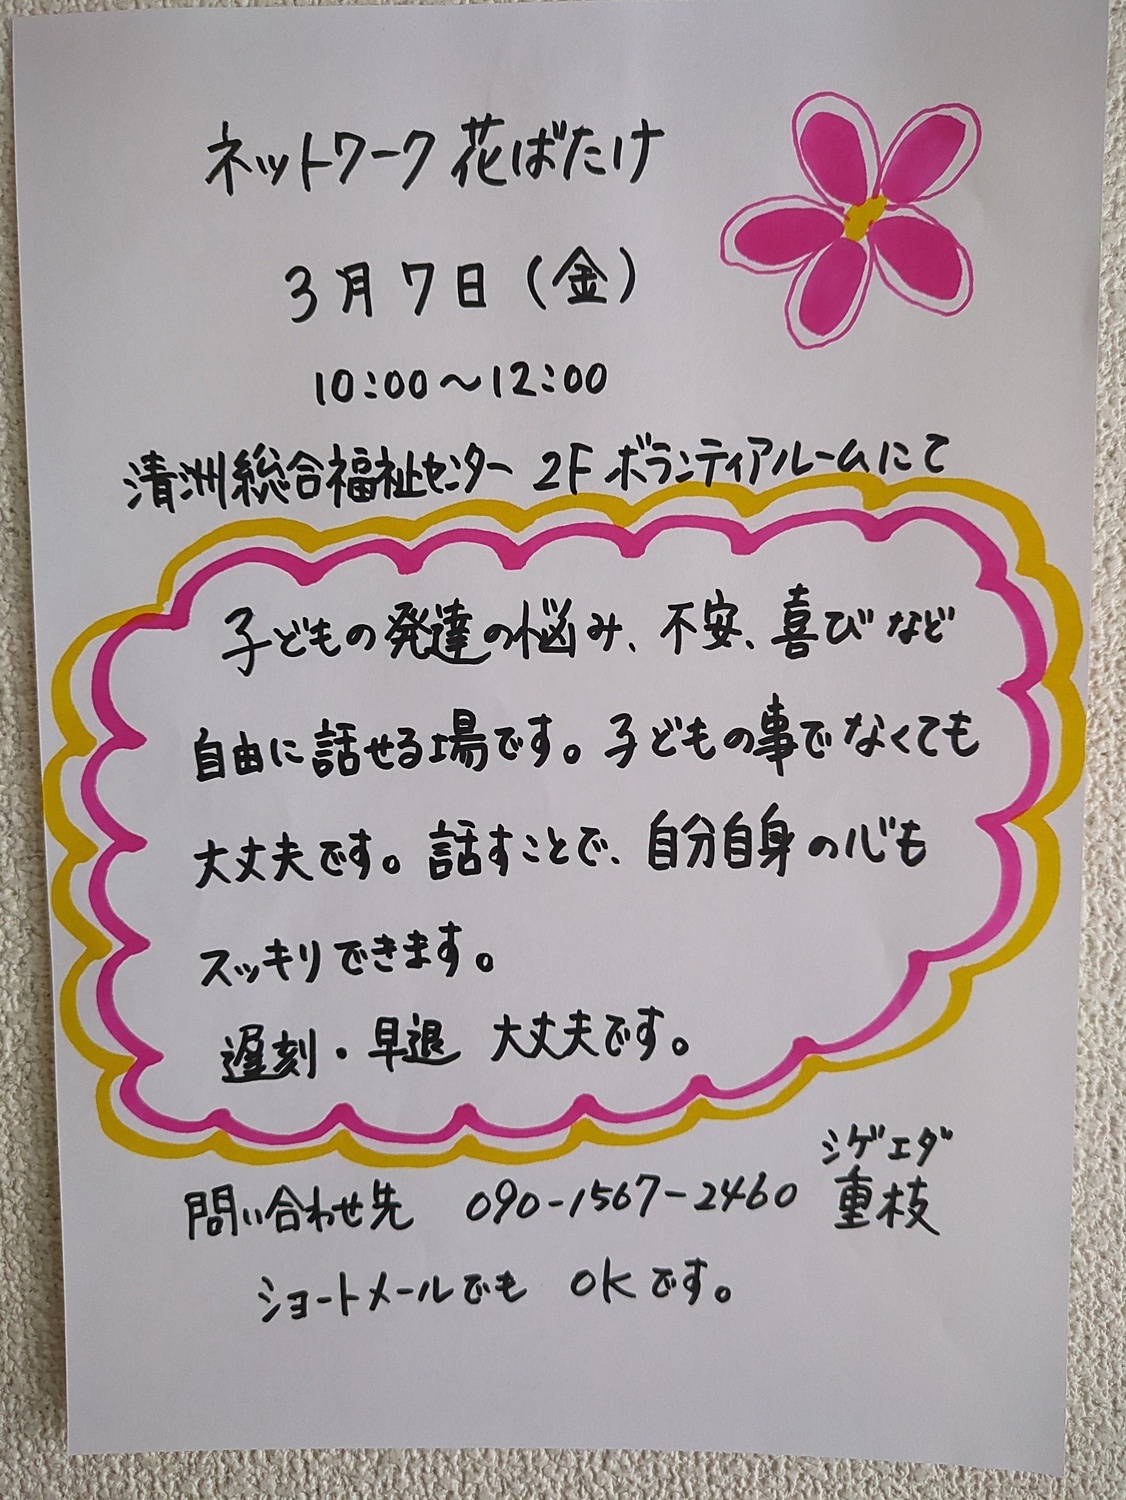 ネットワーク 花ばたけ
3月7日(金)
10:00〜12:00
清洲総合福祉センター 2F ボランティアルームにて
子どもの発達の悩み、不安、喜びなど
自由に話せる場です。子どもの事でなくても
大丈夫です。話すことで、自分自身の心も
スッキリできます。
遅刻・早退 大丈夫です。
シゲエダ
問い合わせ先 090-1567-2460 重枝
ショートメールでも OKです。